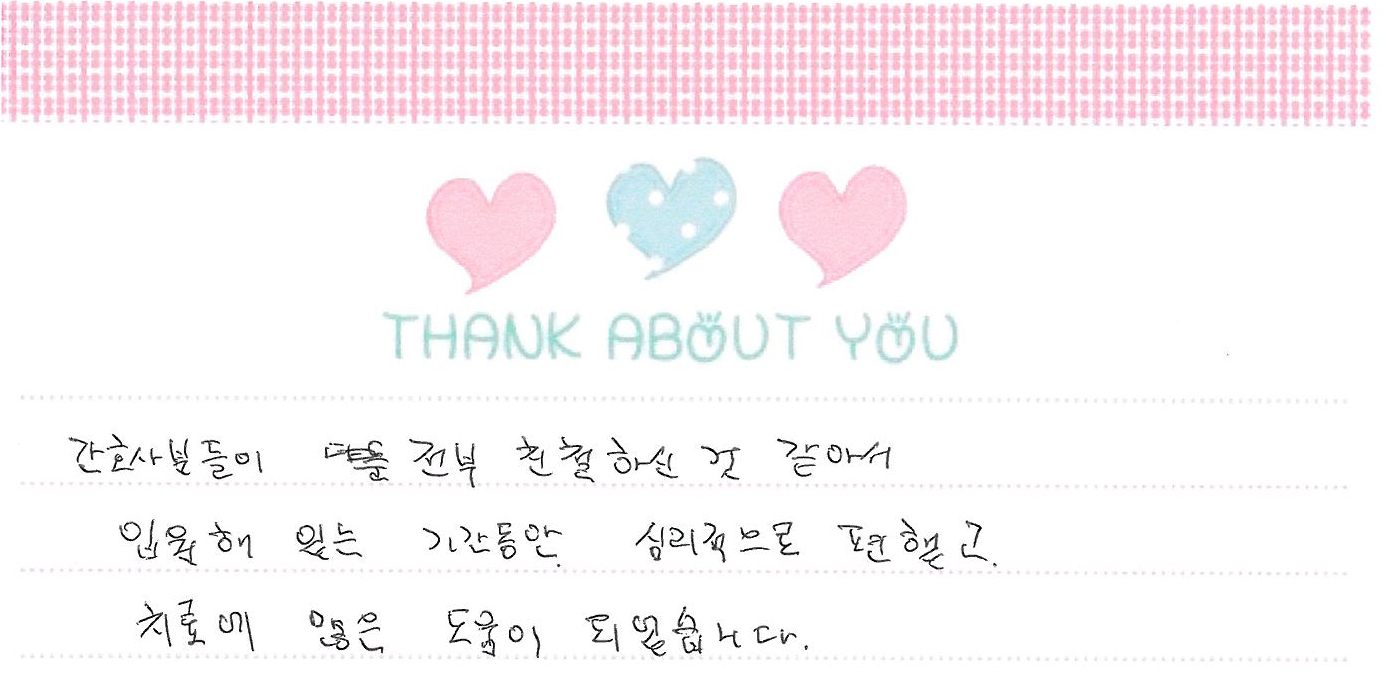 THANK ABOUT YOU
간호사분들이 전부 친절하신 것 같아서
입원해 있는 기간동안 심리적으로 편했고.
치료에 많은 도움이 되었습니다.